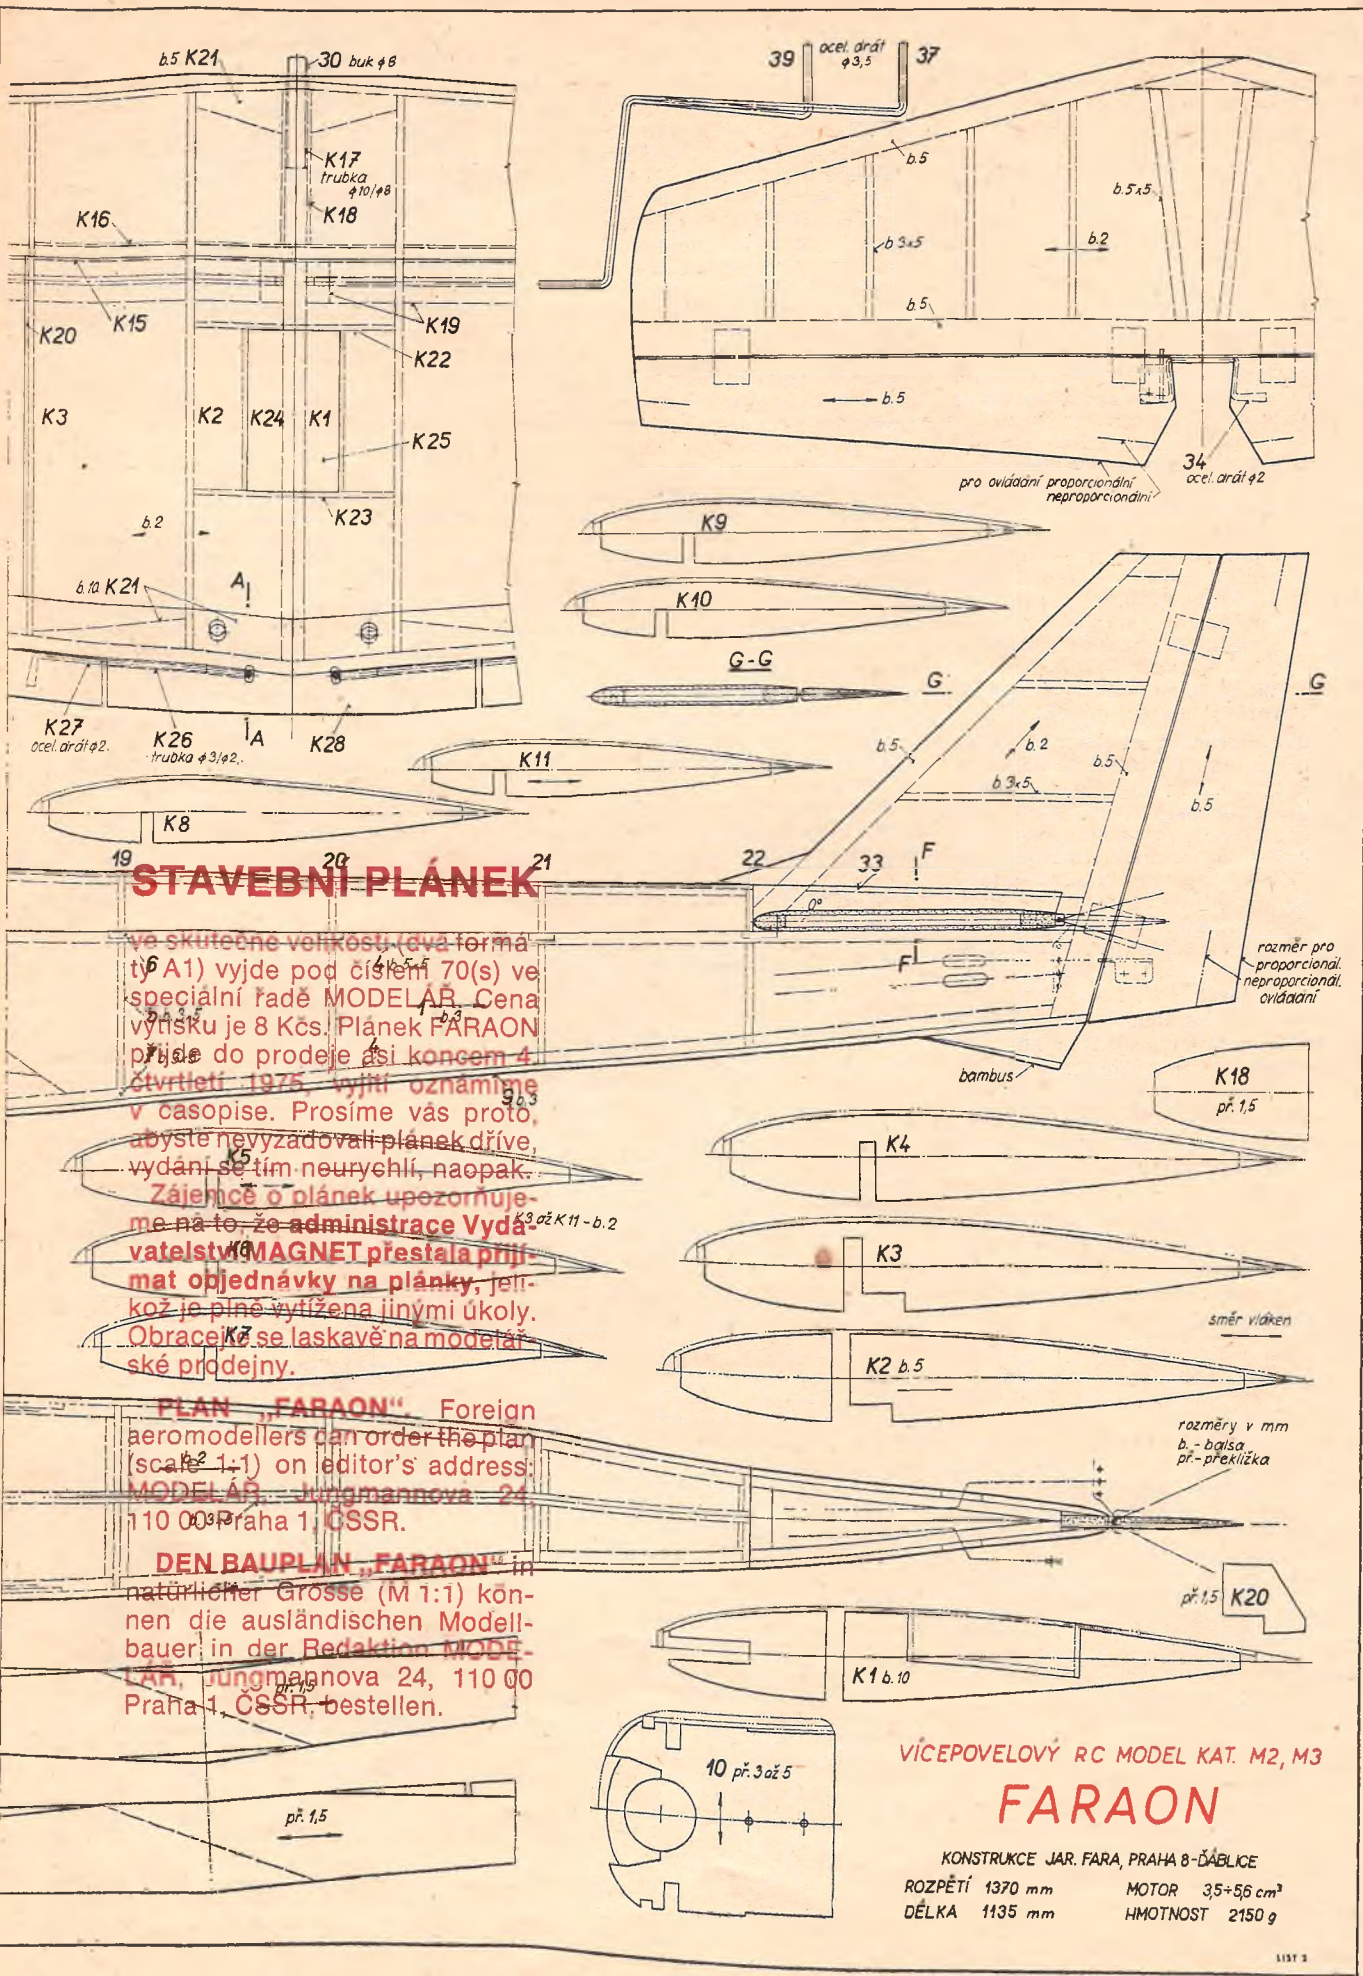 b.5 K21
30 buk ϕ8
K17
trubka
ϕ10/ϕ8
K18
K16
K15
K19
K20
K22
K3
K2
K24
K1
K25
K23
b.2
b.10 K21
A
K27
ocel. drát ϕ2.
K26
trubka ϕ3/ϕ2.
A
K28
39
ocel. drát
ϕ3,5
37
b.5
b.5x5
b 3x5
b.2
b.5
b.5
34
ocel. drát ϕ2
pro ovládání proporcionální
neproporcionální
K9
K10
G-G
G
G
K11
K8
b.5
b.2
b.5
b 3x5
b.5
19
20
21
22
33
F
0°
F
rozměr pro
proporcionál.
neproporcionál.
ovládání
bambus
STAVEBNÍ PLÁNEK
ve skutečné velikosti (dva formá-
ty A1) vyjde pod číslem 70(s) ve
speciální řadě MODELÁŘ. Cena
výtisku je 8 Kčs. Plánek FARAON
přijde do prodeje asi koncem 4.
čtvrtletí 1975, vyjití oznámíme
v časopise. Prosíme vás proto,
abyste nevyžadovali plánek dříve,
vydání se tím neurychlí, naopak.
Zájemce o plánek upozorňuje-
me na to, že administrace Vyda-
vatelství MAGNET přestala přijí-
mat objednávky na plánky, jeli-
kož je plně vytížena jinými úkoly.
Obracejte se laskavě na modelář-
ské prodejny.
PLAN „FARAON“. Foreign
aeromodellers can order the plan
(scale 1:1) on editor's address:
MODELÁŘ, Jungmannova 24,
110 00 Praha 1, ČSSR.
DEN BAUPLAN „FARAON“ in
natürlicher Grösse (M 1:1) kön-
nen die ausländischen Modell-
bauer in der Redaktion MODE-
LÁŘ, Jungmannova 24, 110 00
Praha 1, ČSSR, bestellen.
6
4
1 b.3
4
9 b.3
K5
K3 až K11 - b.2
K6
K7
b.2
př. 1,5
př. 1,5
K18
př. 1,5
K4
K3
směr vláken
K2 b.5
rozměry v mm
b. - balsa
př. - překližka
př. 1,5 K20
K1 b.10
10 př. 3 až 5
VÍCEPOVELOVÝ RC MODEL KAT. M2, M3
FARAON
KONSTRUKCE JAR. FARA, PRAHA 8-ĎÁBLICE
ROZPĚTÍ 1370 mm MOTOR 3,5÷5,6 cm³
DÉLKA 1135 mm HMOTNOST 2150 g
LIST 2